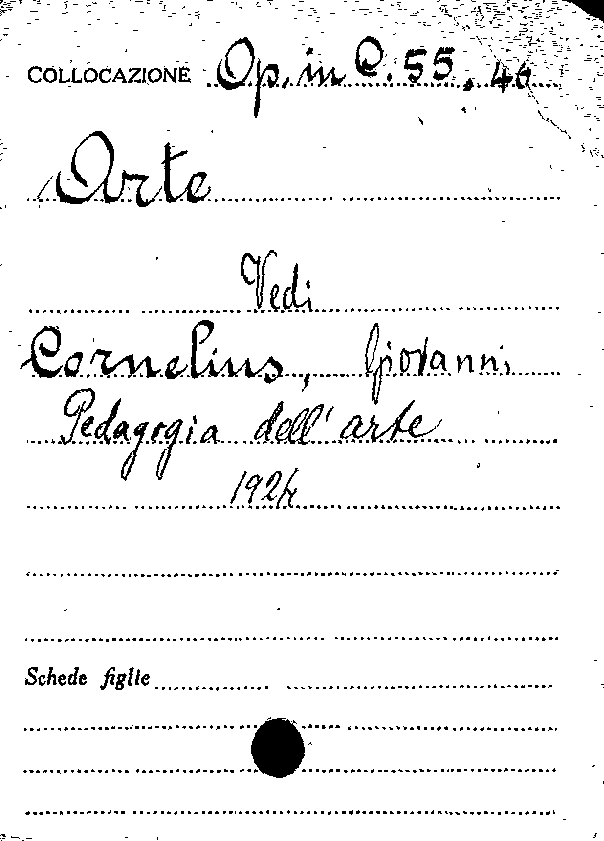 COLLOCAZIONE Op. in C. 55. 46
Arte
Vedi
Cornelius, Giovanni
Pedagogia dell'arte
1924
Schede figlie